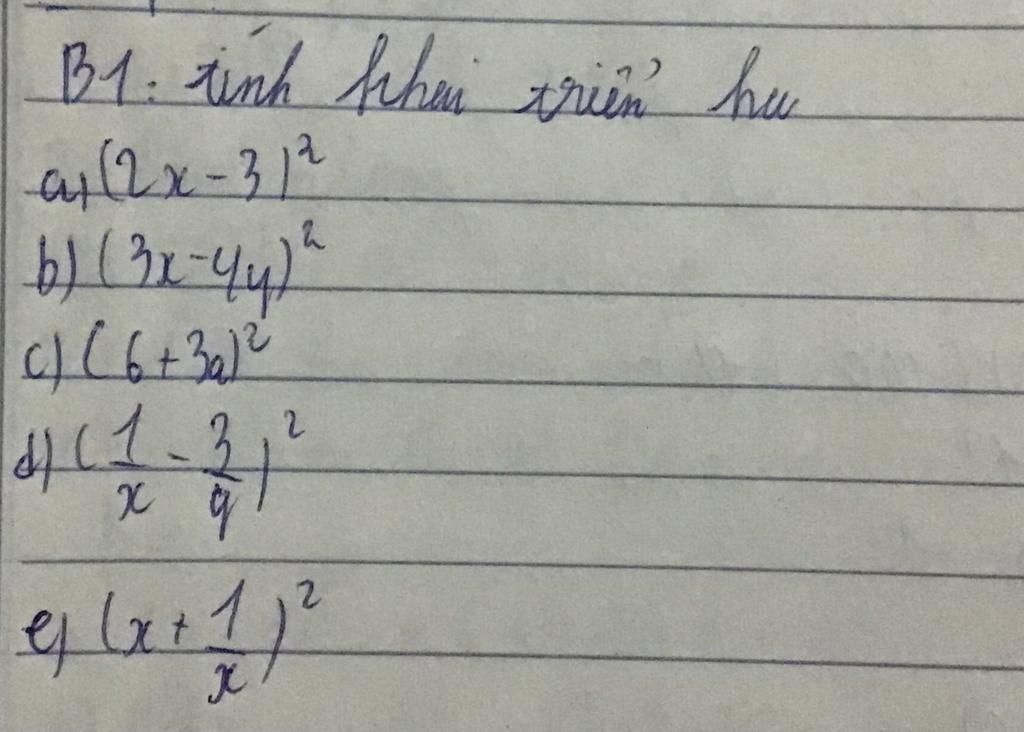 B1: tính khai triển hu
a) (2x - 3)²
b) (3x - 4y)²
c) (6 + 3a)²
d) (1/x - 3/y)²
e) (x + 1/x)²